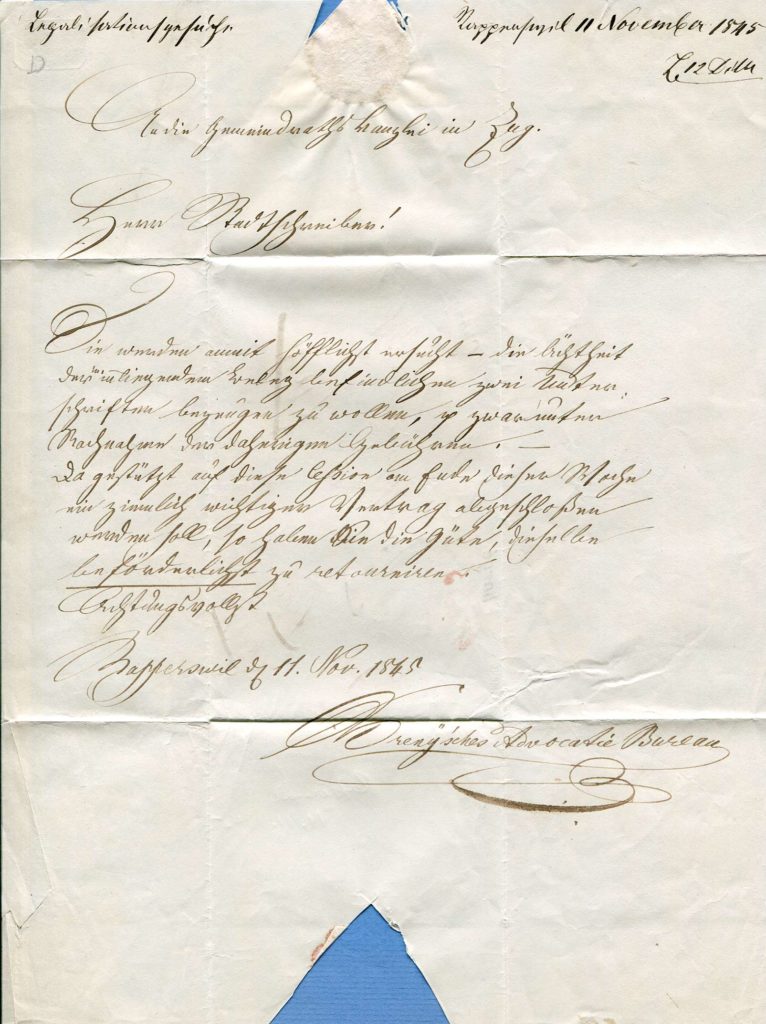 Legalisationsgesuch.
Rapperswil 11 November 1845
12
D
An die Gemeindraths Kanzlei in Zug.
Herr Stadtschreiber!
Sie werden anmit höfflichst ersucht – die Ächtheit
der inliegendem Beleg befindlichen zwei Unter,
schriften bezeugen zu wollen, & zwar unter
Nachnahme der daherigen Gebühren. —
Da gestützt auf diese Cession am Ende dieser Woche
ein ziemlich wichtiger Vertrag abgeschloßen
werden soll, so haben Sie die Güte, dieselbe
beförderlichst zu retourniren.
Achtungsvollst
Rapperswil d 11. Nov. 1845
Advocatie Bureau